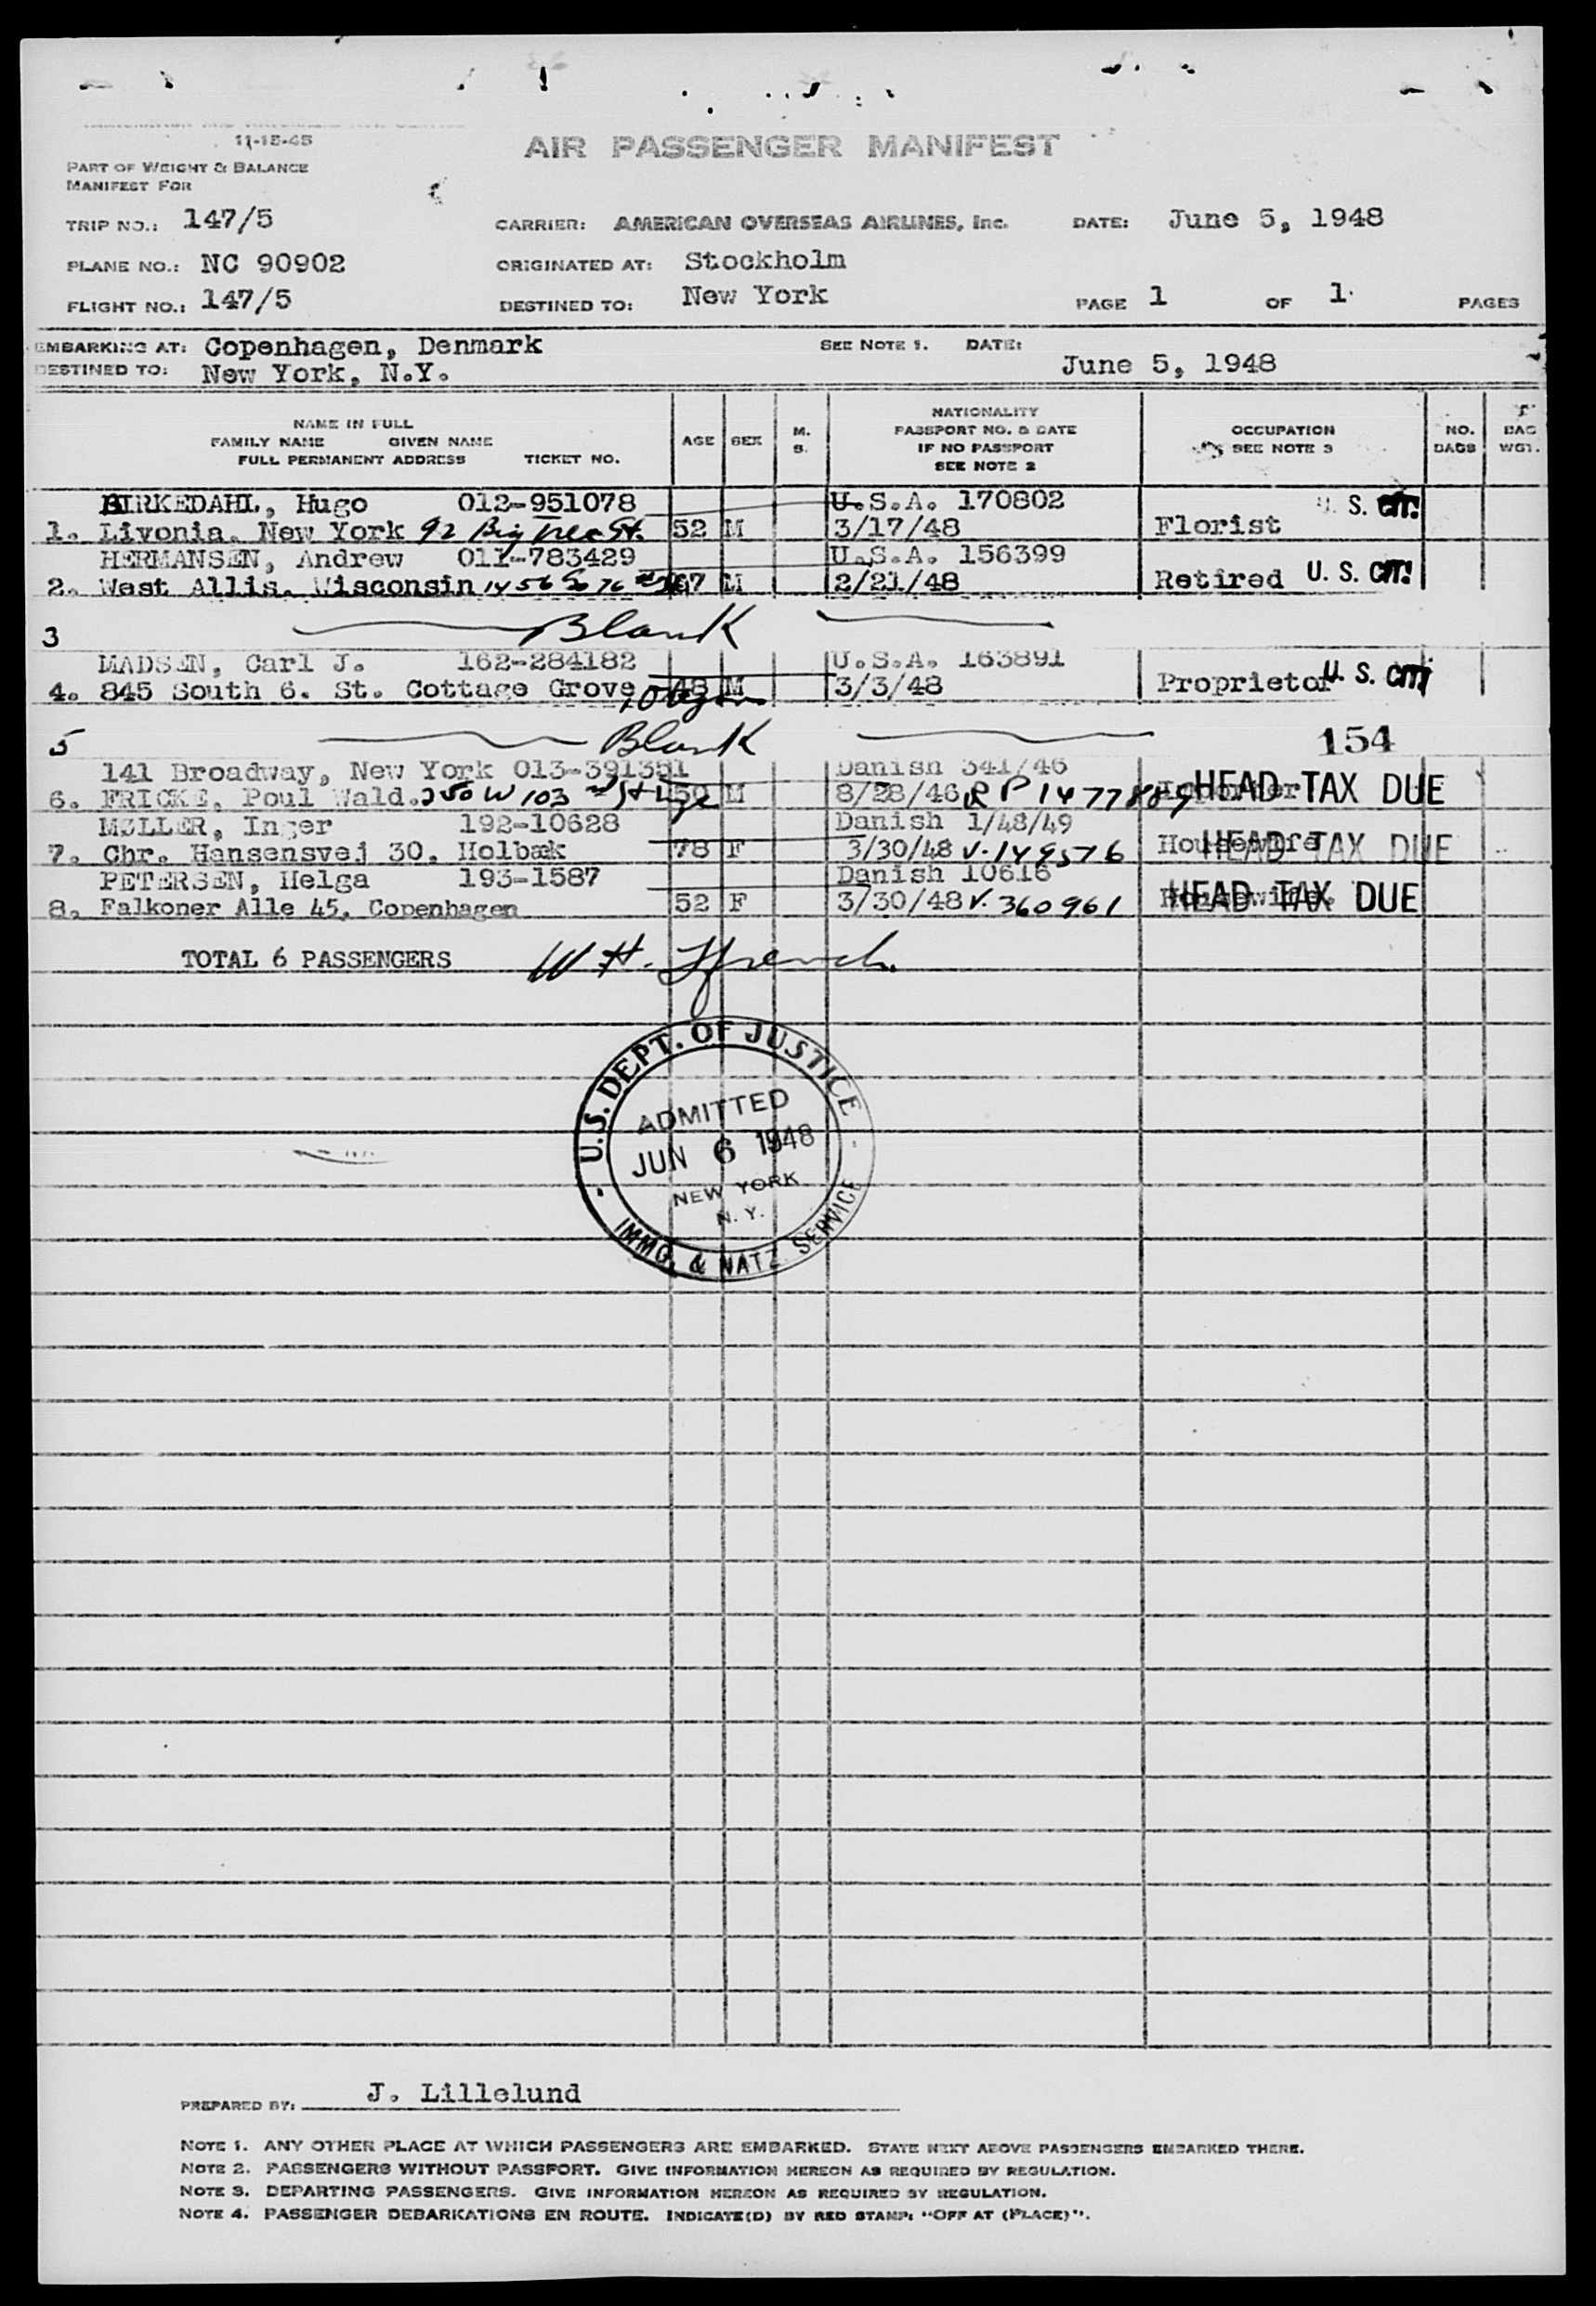 11-15-45
AIR PASSENGER MANIFEST
PART OF WEIGHT & BALANCE
MANIFEST FOR
TRIP NO.: 147/5 CARRIER: AMERICAN OVERSEAS AIRLINES, Inc. DATE: June 5, 1948
PLANE NO.: NC 90902 ORIGINATED AT: Stockholm
FLIGHT NO.: 147/5 DESTINED TO: New York PAGE 1 OF 1 PAGES
EMBARKING AT: Copenhagen, Denmark SEE NOTE 1. DATE: June 5, 1948
DESTINED TO: New York, N.Y.
NAME IN FULL
FAMILY NAME GIVEN NAME
FULL PERMANENT ADDRESS TICKET NO. AGE SEX M. S. NATIONALITY PASSPORT NO. & DATE IF NO PASSPORT SEE NOTE 2 OCCUPATION SEE NOTE 3 NO. BAGS BAG WGT.
BIRKEDAHL, Hugo 012-951078 U.S.A. 170802 U. S. CIT!
1. Livonia, New York 92 Big Tree St. 52 M 3/17/48 Florist
HERMANSEN, Andrew 011-783429 U.S.A. 156399
2. West Allis, Wisconsin 1456 So 76 67 M 2/21/48 Retired U. S. CIT!
3 Blank
MADSEN, Carl J. 162-284182 U.S.A. 163891
4. 845 South 6. St. Cottage Grove, Oregon 48 M 3/3/48 Proprietor U. S. CIT
5 Blank 154
141 Broadway, New York 013-391351 Danish 341/46
6. FRICKE, Poul Wald. 250 W 103 rd St 50 M 8/28/46 RP 1477889 Importer HEAD TAX DUE
MØLLER, Inger 192-10628 Danish 1/48/49
7. Chr. Hansensvej 30, Holbæk 78 F 3/30/48 V. 149576 Housewife HEAD TAX DUE
PETERSEN, Helga 193-1587 Danish 10616
8. Falkoner Alle 45, Copenhagen 52 F 3/30/48 V. 360961 Housewife. HEAD TAX DUE
TOTAL 6 PASSENGERS W. H. French
U.S. DEPT. OF JUSTICE
ADMITTED
JUN 6 1948
NEW YORK
N. Y.
IMMG. & NATZ. SERVICE
PREPARED BY: J. Lillelund
NOTE 1. ANY OTHER PLACE AT WHICH PASSENGERS ARE EMBARKED. STATE NEXT ABOVE PASSENGERS EMBARKED THERE.
NOTE 2. PASSENGERS WITHOUT PASSPORT. GIVE INFORMATION HEREON AS REQUIRED BY REGULATION.
NOTE 3. DEPARTING PASSENGERS. GIVE INFORMATION HEREON AS REQUIRED BY REGULATION.
NOTE 4. PASSENGER DEBARKATIONS EN ROUTE. INDICATE(D) BY RED STAMP: "OFF AT (PLACE)".